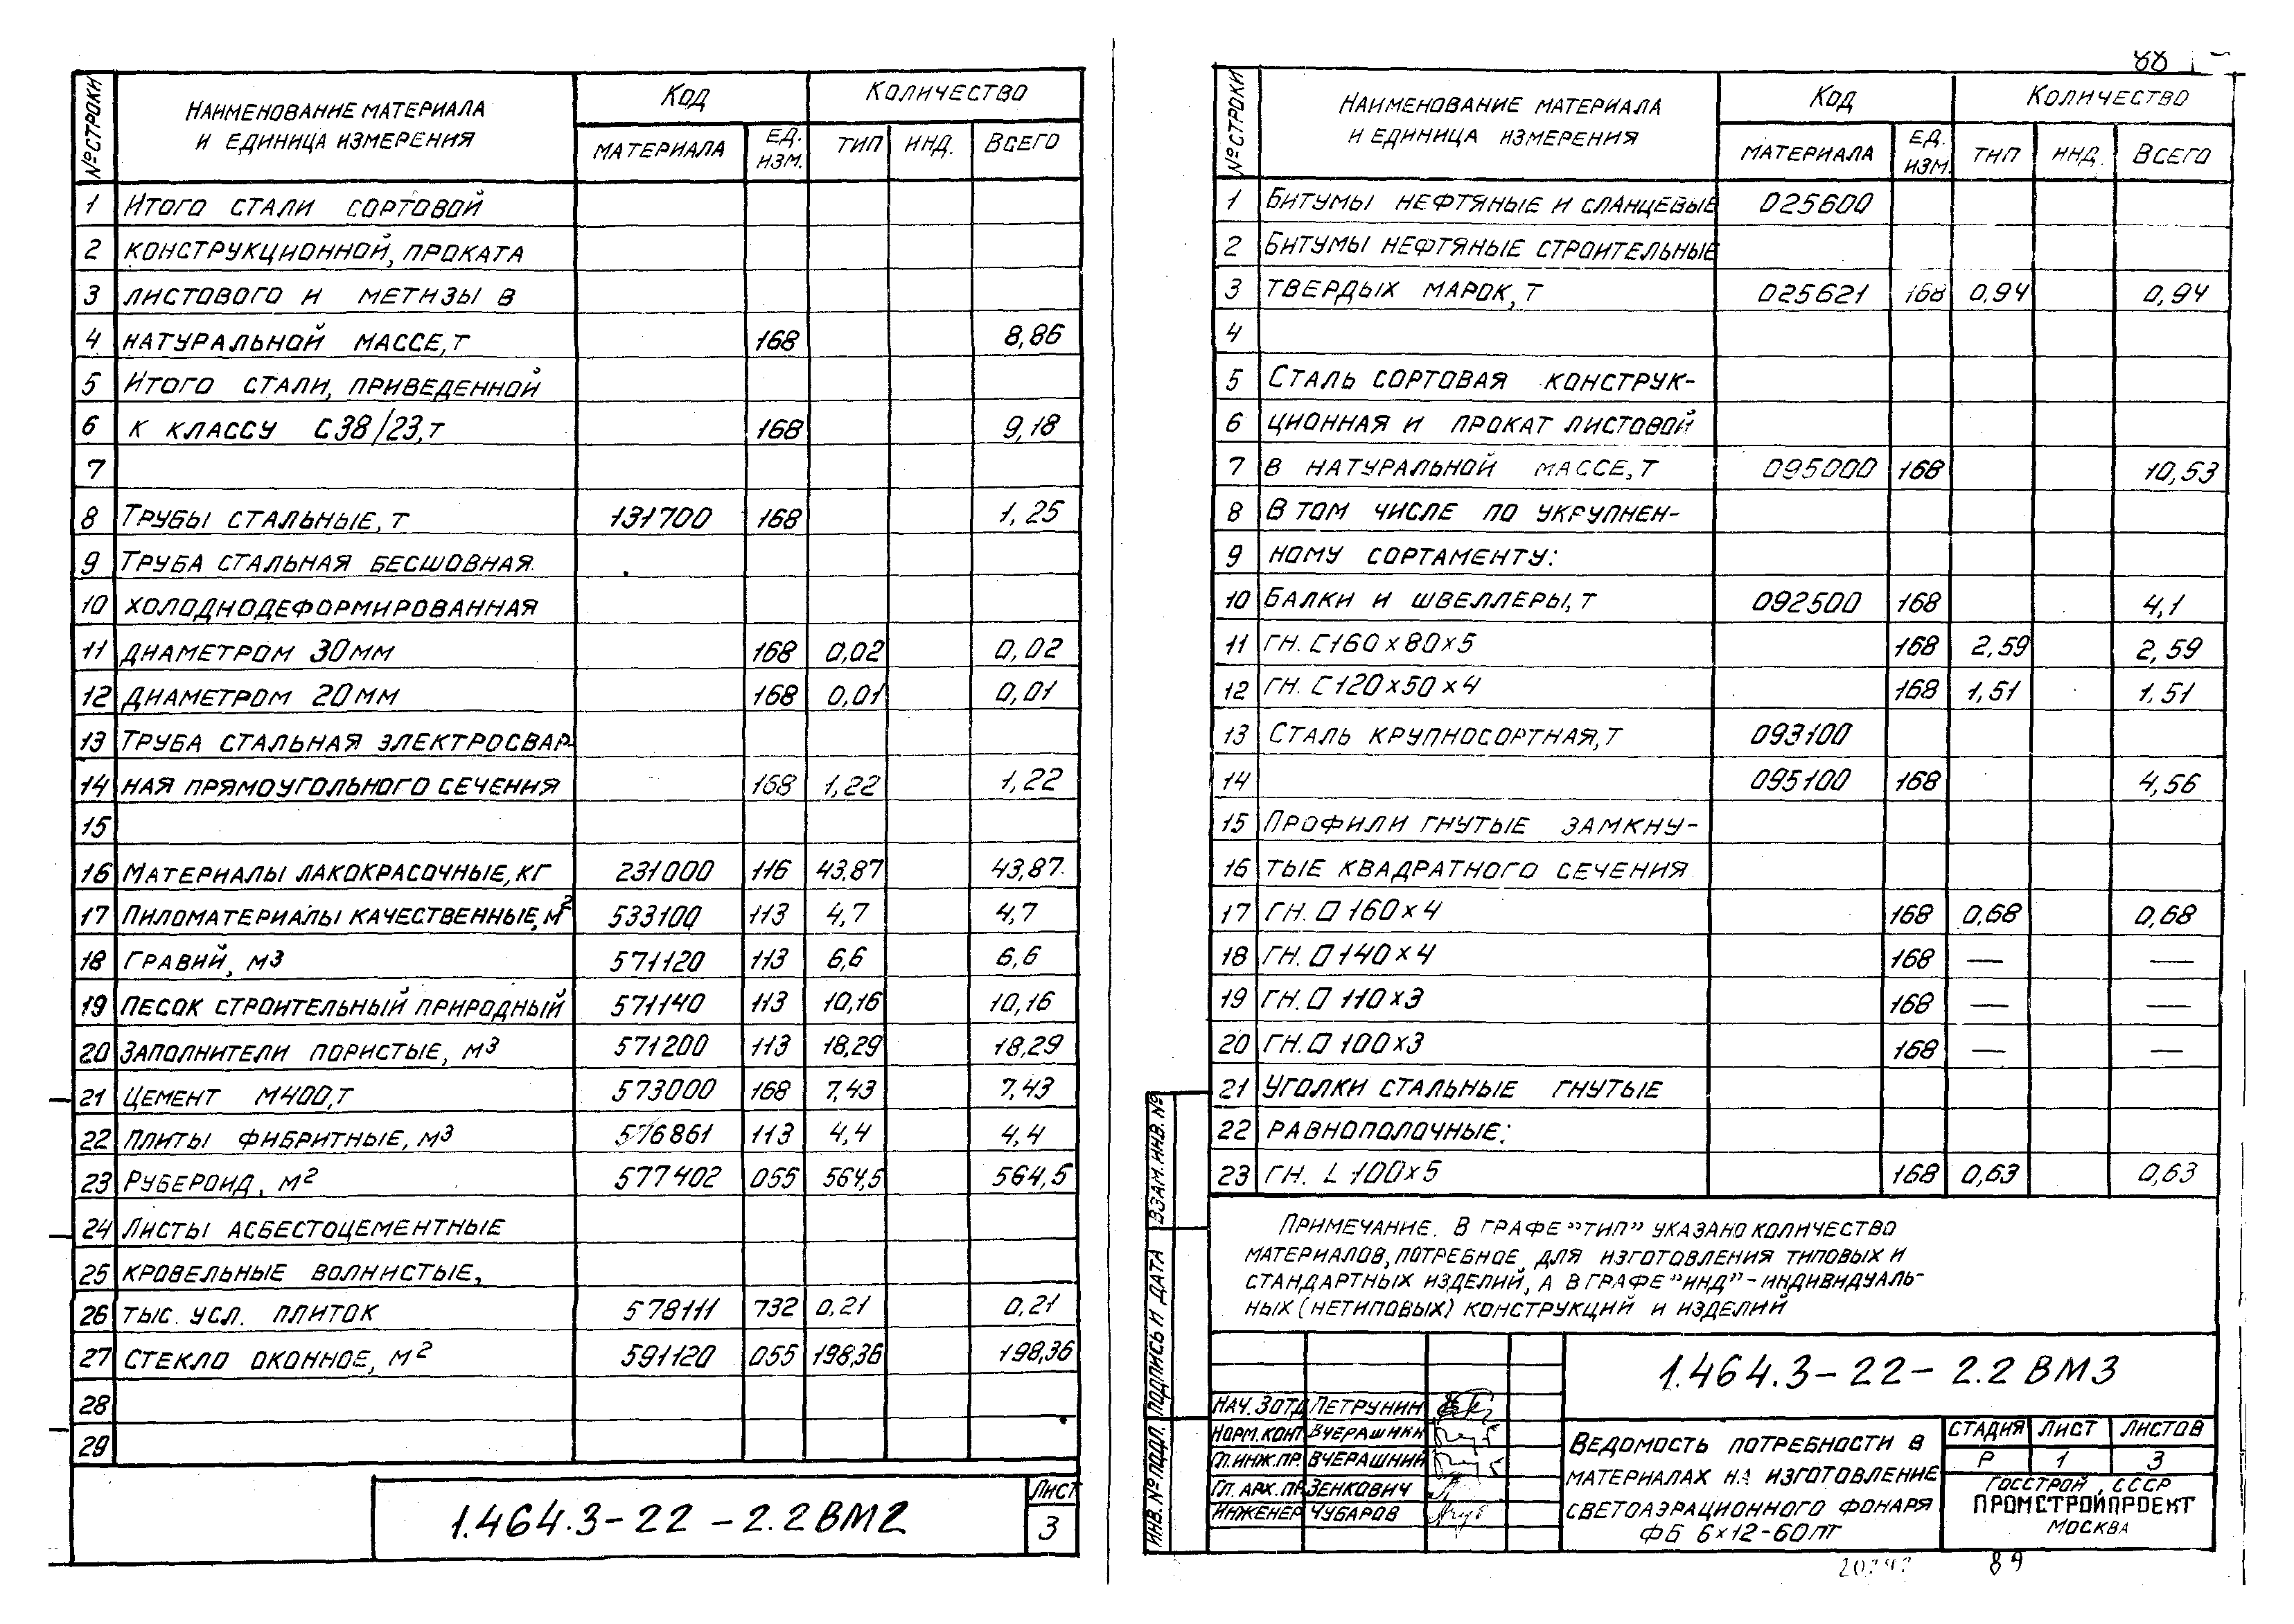 № СТРОКИ | НАИМЕНОВАНИЕ МАТЕРИАЛА И ЕДИНИЦА ИЗМЕРЕНИЯ | КОД | КОЛИЧЕСТВО
МАТЕРИАЛА | ЕД. ИЗМ. | ТИП | ИНД. | ВСЕГО
1 ИТОГО СТАЛИ СОРТОВОЙ
2 КОНСТРУКЦИОННОЙ, ПРОКАТА
3 ЛИСТОВОГО И МЕТИЗЫ В
4 НАТУРАЛЬНОЙ МАССЕ, Т 168 8,86
5 ИТОГО СТАЛИ, ПРИВЕДЕННОЙ
6 К КЛАССУ С38/23, Т 168 9,18
7
8 ТРУБЫ СТАЛЬНЫЕ, Т 131700 168 1,25
9 ТРУБА СТАЛЬНАЯ БЕСШОВНАЯ
10 ХОЛОДНОДЕФОРМИРОВАННАЯ
11 ДИАМЕТРОМ 30 ММ 168 0,02 0,02
12 ДИАМЕТРОМ 20 ММ 168 0,01 0,01
13 ТРУБА СТАЛЬНАЯ ЭЛЕКТРОСВАР-
14 НАЯ ПРЯМОУГОЛЬНОГО СЕЧЕНИЯ 168 1,22 1,22
15
16 МАТЕРИАЛЫ ЛАКОКРАСОЧНЫЕ, КГ 231000 116 43,87 43,87
17 ПИЛОМАТЕРИАЛЫ КАЧЕСТВЕННЫЕ, М2 533100 113 4,7 4,7
18 ГРАВИЙ, М3 571120 113 6,6 6,6
19 ПЕСОК СТРОИТЕЛЬНЫЙ ПРИРОДНЫЙ 571140 113 10,16 10,16
20 ЗАПОЛНИТЕЛИ ПОРИСТЫЕ, М3 571200 113 18,29 18,29
21 ЦЕМЕНТ М400, Т 573000 168 7,43 7,43
22 ПЛИТЫ ФИБРИТНЫЕ, М3 576861 113 4,4 4,4
23 РУБЕРОИД, М2 577402 055 564,5 564,5
24 ЛИСТЫ АСБЕСТОЦЕМЕНТНЫЕ
25 КРОВЕЛЬНЫЕ ВОЛНИСТЫЕ,
26 ТЫС. УСЛ. ПЛИТОК 578111 732 0,21 0,21
27 СТЕКЛО ОКОННОЕ, М2 591120 055 198,36 198,36
28
29
1.464.3-22-2.2 ВМ2
ЛИСТ
3
88
№ СТРОКИ | НАИМЕНОВАНИЕ МАТЕРИАЛА И ЕДИНИЦА ИЗМЕРЕНИЯ | КОД | КОЛИЧЕСТВО
МАТЕРИАЛА | ЕД. ИЗМ. | ТИП | ИНД. | ВСЕГО
1 БИТУМЫ НЕФТЯНЫЕ И СЛАНЦЕВЫЕ 025600
2 БИТУМЫ НЕФТЯНЫЕ СТРОИТЕЛЬНЫЕ
3 ТВЕРДЫХ МАРОК, Т 025621 168 0,94 0,94
4
5 СТАЛЬ СОРТОВАЯ КОНСТРУК-
6 ЦИОННАЯ И ПРОКАТ ЛИСТОВОЙ
7 В НАТУРАЛЬНОЙ МАССЕ, Т 095000 168 10,53
8 В ТОМ ЧИСЛЕ ПО УКРУПНЕН-
9 НОМУ СОРТАМЕНТУ:
10 БАЛКИ И ШВЕЛЛЕРЫ, Т 092500 168 4,1
11 ГН. [160×80×5 168 2,59 2,59
12 ГН. [120×50×4 168 1,51 1,51
13 СТАЛЬ КРУПНОСОРТНАЯ, Т 093100
14 095100 168 4,56
15 ПРОФИЛИ ГНУТЫЕ ЗАМКНУ-
16 ТЫЕ КВАДРАТНОГО СЕЧЕНИЯ
17 ГН. □ 160×4 168 0,68 0,68
18 ГН. □ 140×4 168 — —
19 ГН. □ 110×3 168 — —
20 ГН. □ 100×3 168 — —
21 УГОЛКИ СТАЛЬНЫЕ ГНУТЫЕ
22 РАВНОПОЛОЧНЫЕ:
23 ГН. L 100×5 168 0,63 0,63
ПРИМЕЧАНИЕ. В ГРАФЕ "ТИП" УКАЗАНО КОЛИЧЕСТВО
МАТЕРИАЛОВ, ПОТРЕБНОЕ ДЛЯ ИЗГОТОВЛЕНИЯ ТИПОВЫХ И
СТАНДАРТНЫХ ИЗДЕЛИЙ, А В ГРАФЕ "ИНД" - ИНДИВИДУАЛЬ-
НЫХ (НЕТИПОВЫХ) КОНСТРУКЦИЙ И ИЗДЕЛИЙ
ВЗАМ. ИНВ. №
ПОДПИСЬ И ДАТА
ИНВ. № ПОДЛ.
1.464.3-22-2.2 ВМ3
НАЧ. ЗОТД ПЕТРУНИН
НОРМ. КОНТ ВЧЕРАШНИЙ
ГЛ. ИНЖ. ПР. ВЧЕРАШНИЙ
ГЛ. АРХ. ПР ЗЕНКОВИЧ
ИНЖЕНЕР ЧУБАРОВ
ВЕДОМОСТЬ ПОТРЕБНОСТИ В
МАТЕРИАЛАХ НА ИЗГОТОВЛЕНИЕ
СВЕТОАЭРАЦИОННОГО ФОНАРЯ
ФБ 6×12-60ЛТ
СТАДИЯ ЛИСТ ЛИСТОВ
Р 1 3
ГОССТРОЙ СССР
ПРОМСТРОЙПРОЕКТ
МОСКВА
89